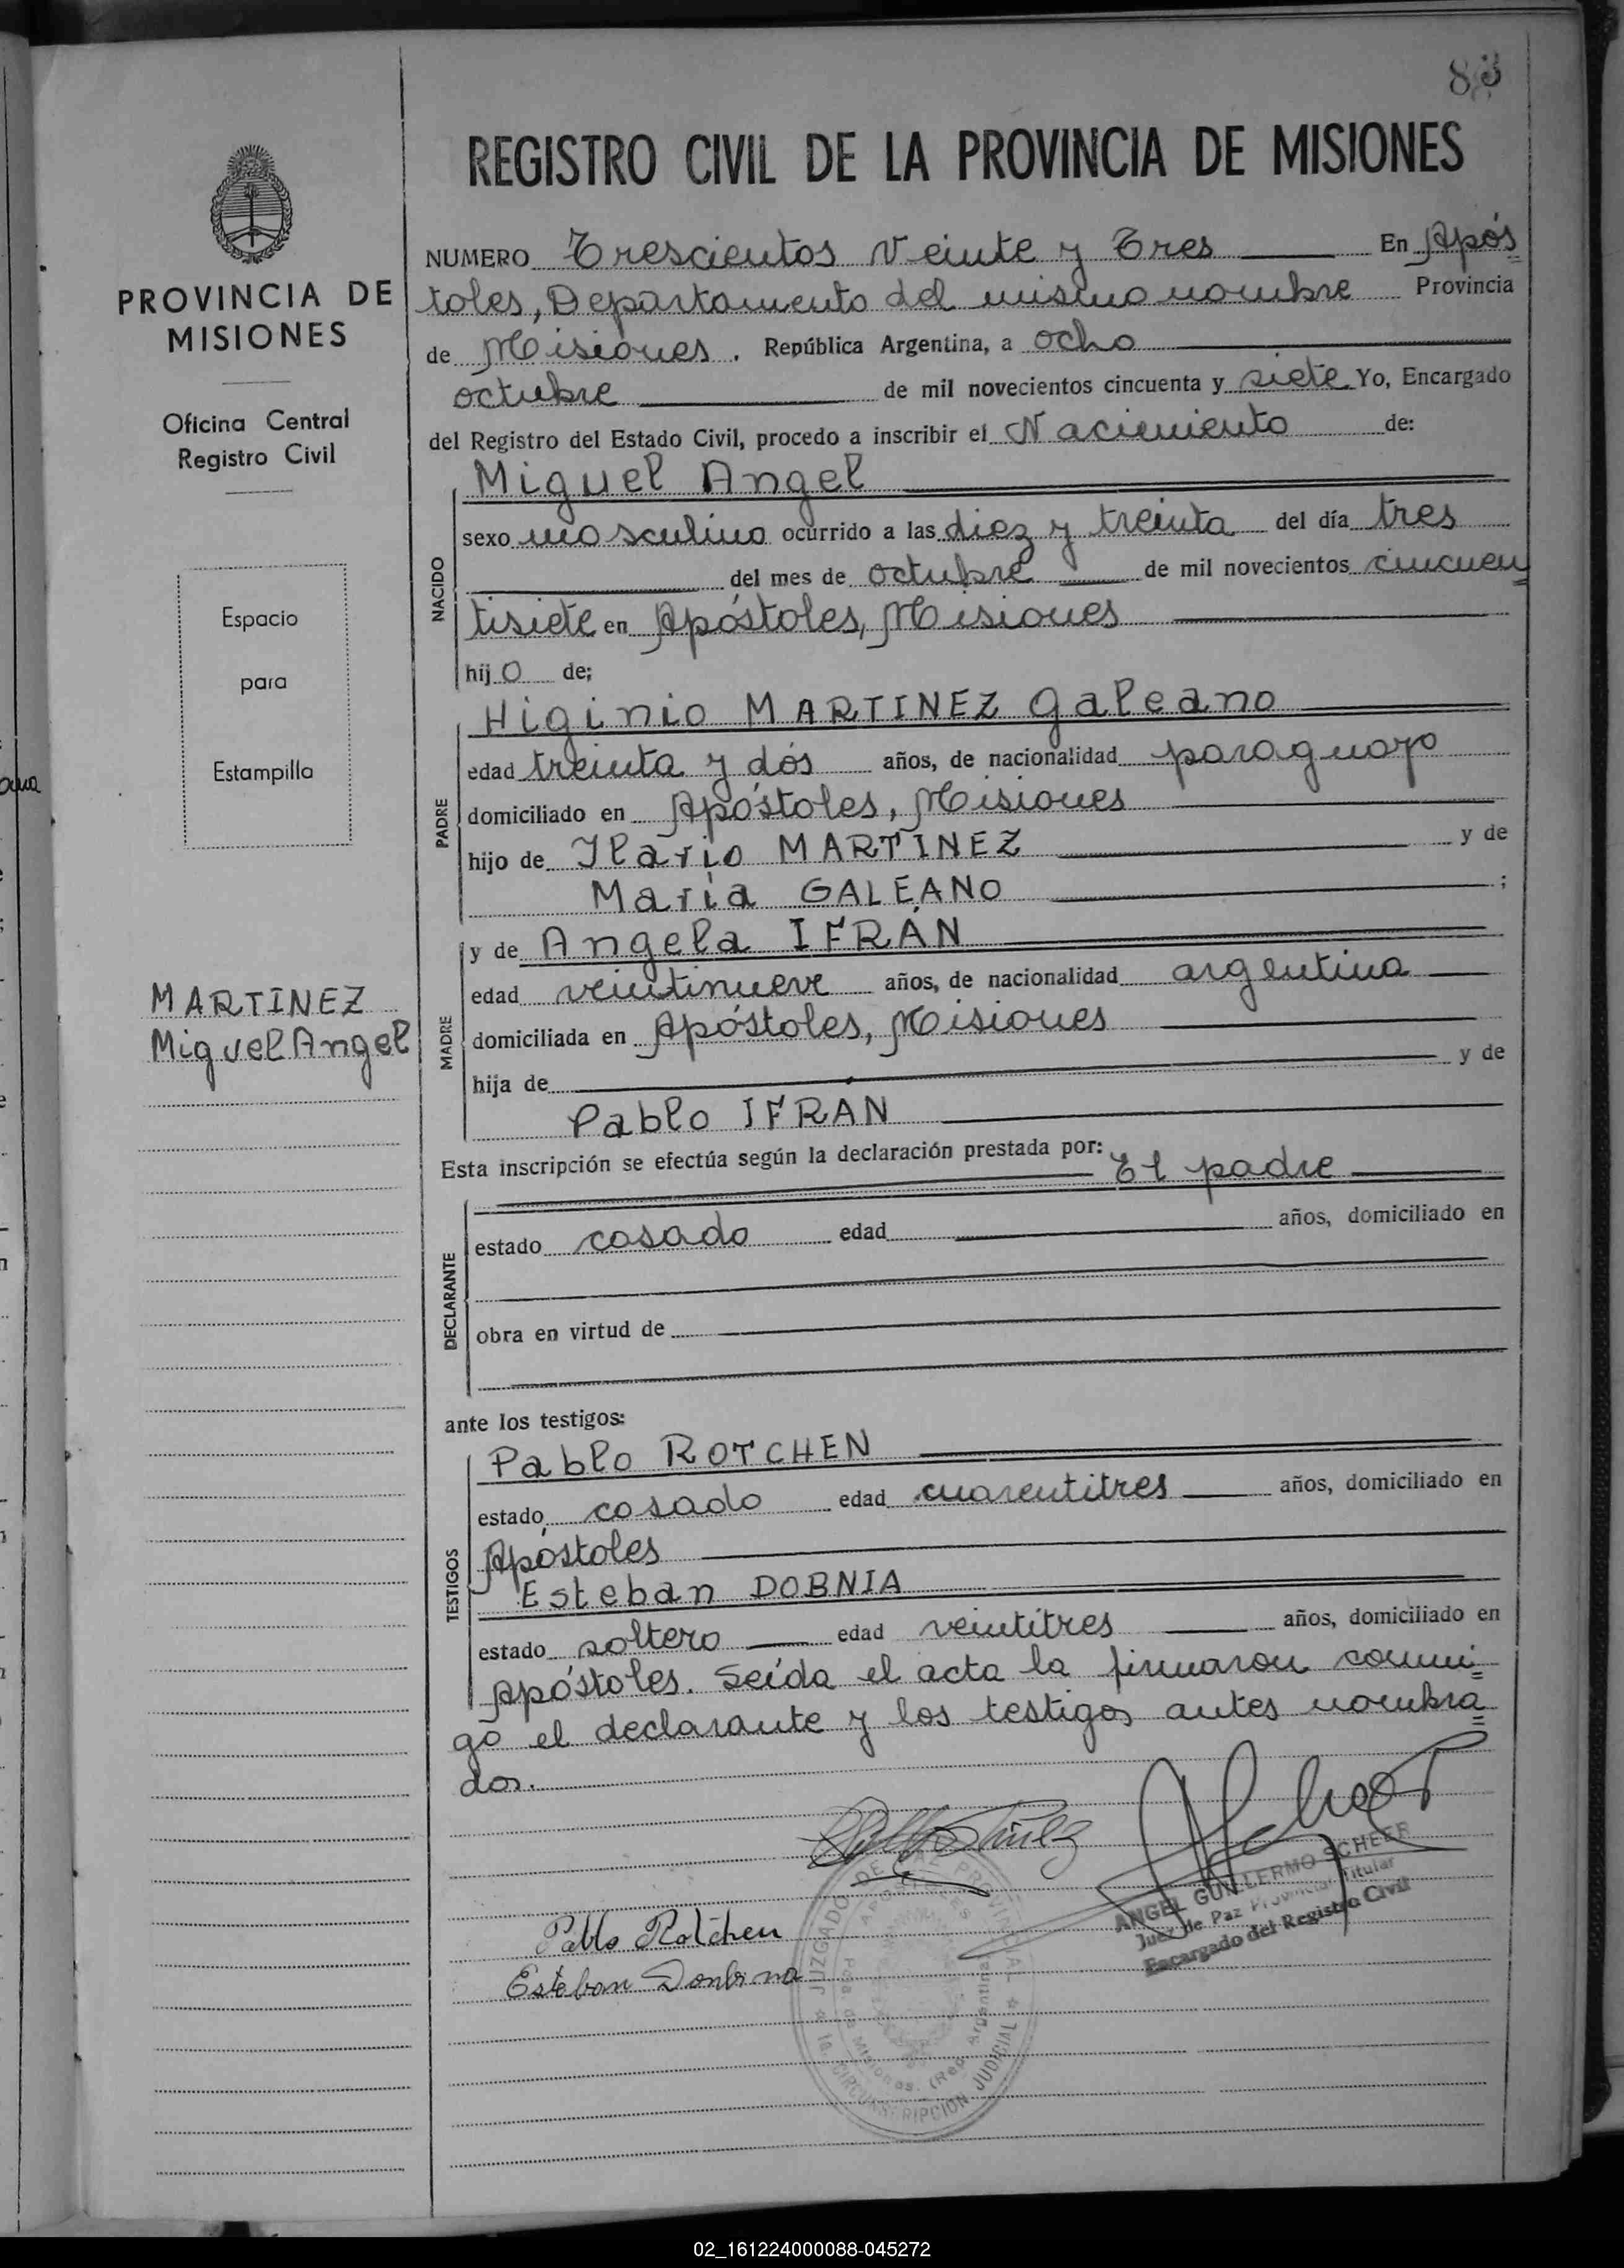 83
REGISTRO CIVIL DE LA PROVINCIA DE MISIONES
PROVINCIA DE
MISIONES
Oficina Central
Registro Civil
Espacio
para
Estampilla
MARTINEZ
Miguel Angel
NUMERO Trescientos Veinte y Tres En Após
toles, Departamento del mismo nombre Provincia
de Misiones. República Argentina, a ocho
octubre de mil novecientos cincuenta y siete Yo, Encargado
del Registro del Estado Civil, procedo a inscribir el Nacimiento de:
NACIDO
Miguel Angel
sexo masculino ocurrido a las diez y treinta del día tres
del mes de octubre de mil novecientos cincuen
tisiete en Apóstoles, Misiones
hijo de;
PADRE
Higinio MARTINEZ Galeano
edad treinta y dós años, de nacionalidad paraguayo
domiciliado en Apóstoles, Misiones
hijo de Ilario MARTINEZ y de
Maria GALEANO ;
MADRE
y de Angela IFRÁN
edad veintinueve años, de nacionalidad argentina
domiciliada en Apóstoles, Misiones
hija de y de
Pablo IFRAN
Esta inscripción se efectúa según la declaración prestada por: El padre
DECLARANTE
estado casado edad años, domiciliado en
obra en virtud de
ante los testigos:
TESTIGOS
Pablo ROTCHEN
estado casado edad cuarentitres años, domiciliado en
Apóstoles
Esteban DOBNIA
estado soltero edad veintitres años, domiciliado en
Apóstoles. Leída el acta la firmaron conmi
go el declarante y los testigos antes nombra
dos.
ANGEL GUILLERMO SCHEEF
Juez de Paz Provincial Titular
Encargado del Registro Civil
Pablo Rotchen
Esteban
JUZGADO DE PAZ PROVINCIAL
APOSTOLES
Pcia. de Misiones. (Rep. Argentina)
1a. CIRCUNSCRIPCION JUDICIAL
02_161224000088-045272